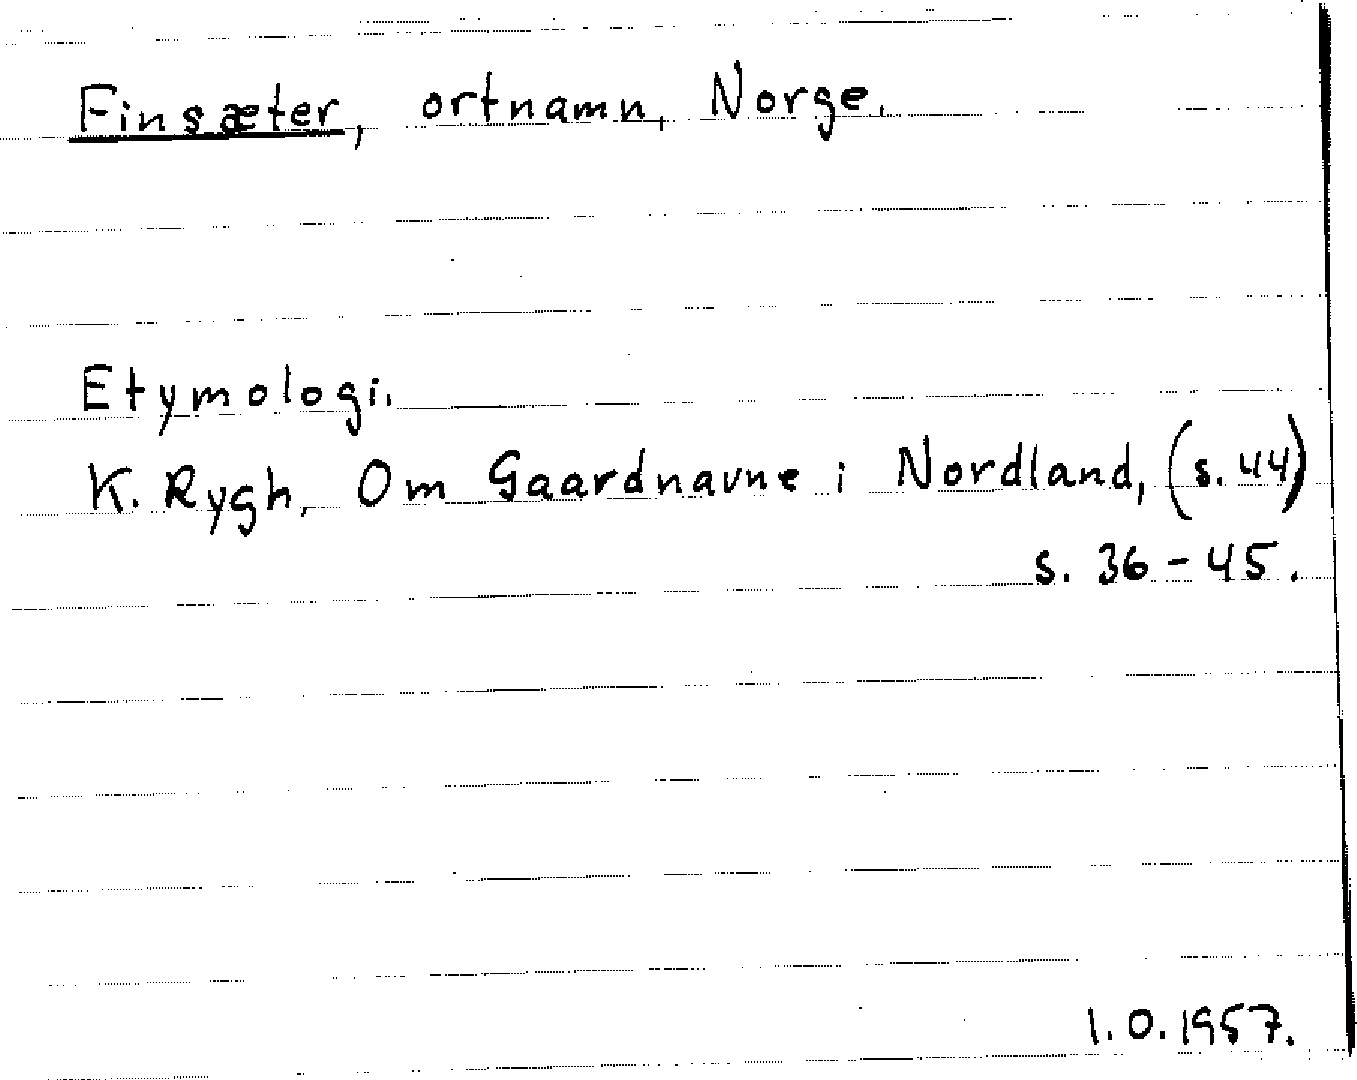 Finsæter, ortnamn, Norge.
Etymologi.
K. Rygh, Om Gaardnavne i Nordland, (s. 44)
s. 36-45.
1.0.1957.